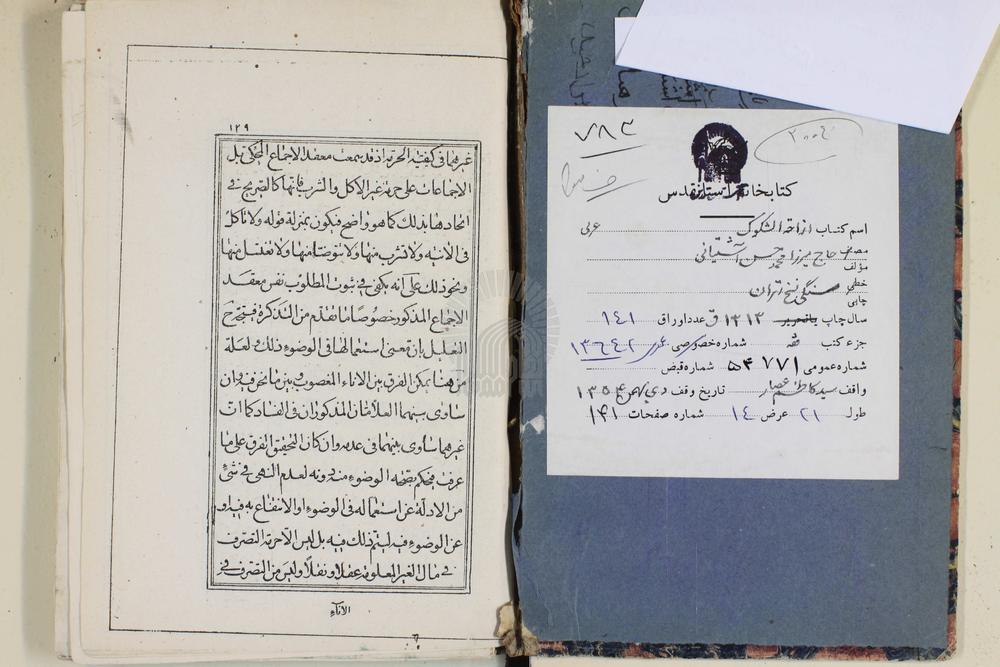 ۱۲۹
غيرهما فى كيفية الحرمة اذ قد سمعت معقد الاجماع المحكى بل
الاجماعات على حرمة غير الاكل والشرب فانها كالصريح فى
اتحادهما بذلك كما هو واضح فيكون بمنزلة قوله ولا تاكل
فى الانية ولا تشرب منها ولا تتوضا منها ولا تغتسل منها
ونحو ذلك على انه يكفى فى ثبوت المطلوب نفس معقد
الاجماع المذكور خصوصًا ما تقدم من التذكرة فتصحّ
التعليل بان معنى استعمالها فى الوضوء ذلك ولعله
من هنا يمكن الفرق بين الاناء المغصوب وبين ما نحن فيه وان
ساوى بينهما العلامتان المذكوران فى الفساد كما ان
غيرهما ساوى بينهما فى عدمه وان كان التحقيق الفرق على ما
عرفت فيحكم بصحة الوضوء منه دونه لعدم النهى فى شئ
من الادلة عن استعماله فى الوضوء او الانتفاع به فيه او
عن الوضوء فيه ليتم ذلك فيه بل ليس الا حرمة التصرف
فى مال الغير المعلومة عقلا ونقلا وليس من التصرف فى
الاناء
۷۸۳
۳۰۰۴
کتابخانه آستانقدس
اسم کتاب ازاحة الشکوک عربی
مصنف مؤلف حاج میرزا محمد حسن آشتیانی
خطی چاپی سنگی نخ تهران
سال چاپ یا تحریر ۱۳۱۴ ق عدد اوراق ۱۴۱
جزء کتب فقه شماره خصوصی ۱۳۶۴۲
شماره عمومی ۵۴۷۷۱ شماره قبض
واقف سید کاظم عصار تاریخ وقف دی ۱۳۵۴
طول ۲۱ عرض ۱۴ شماره صفحات ۱۴۱